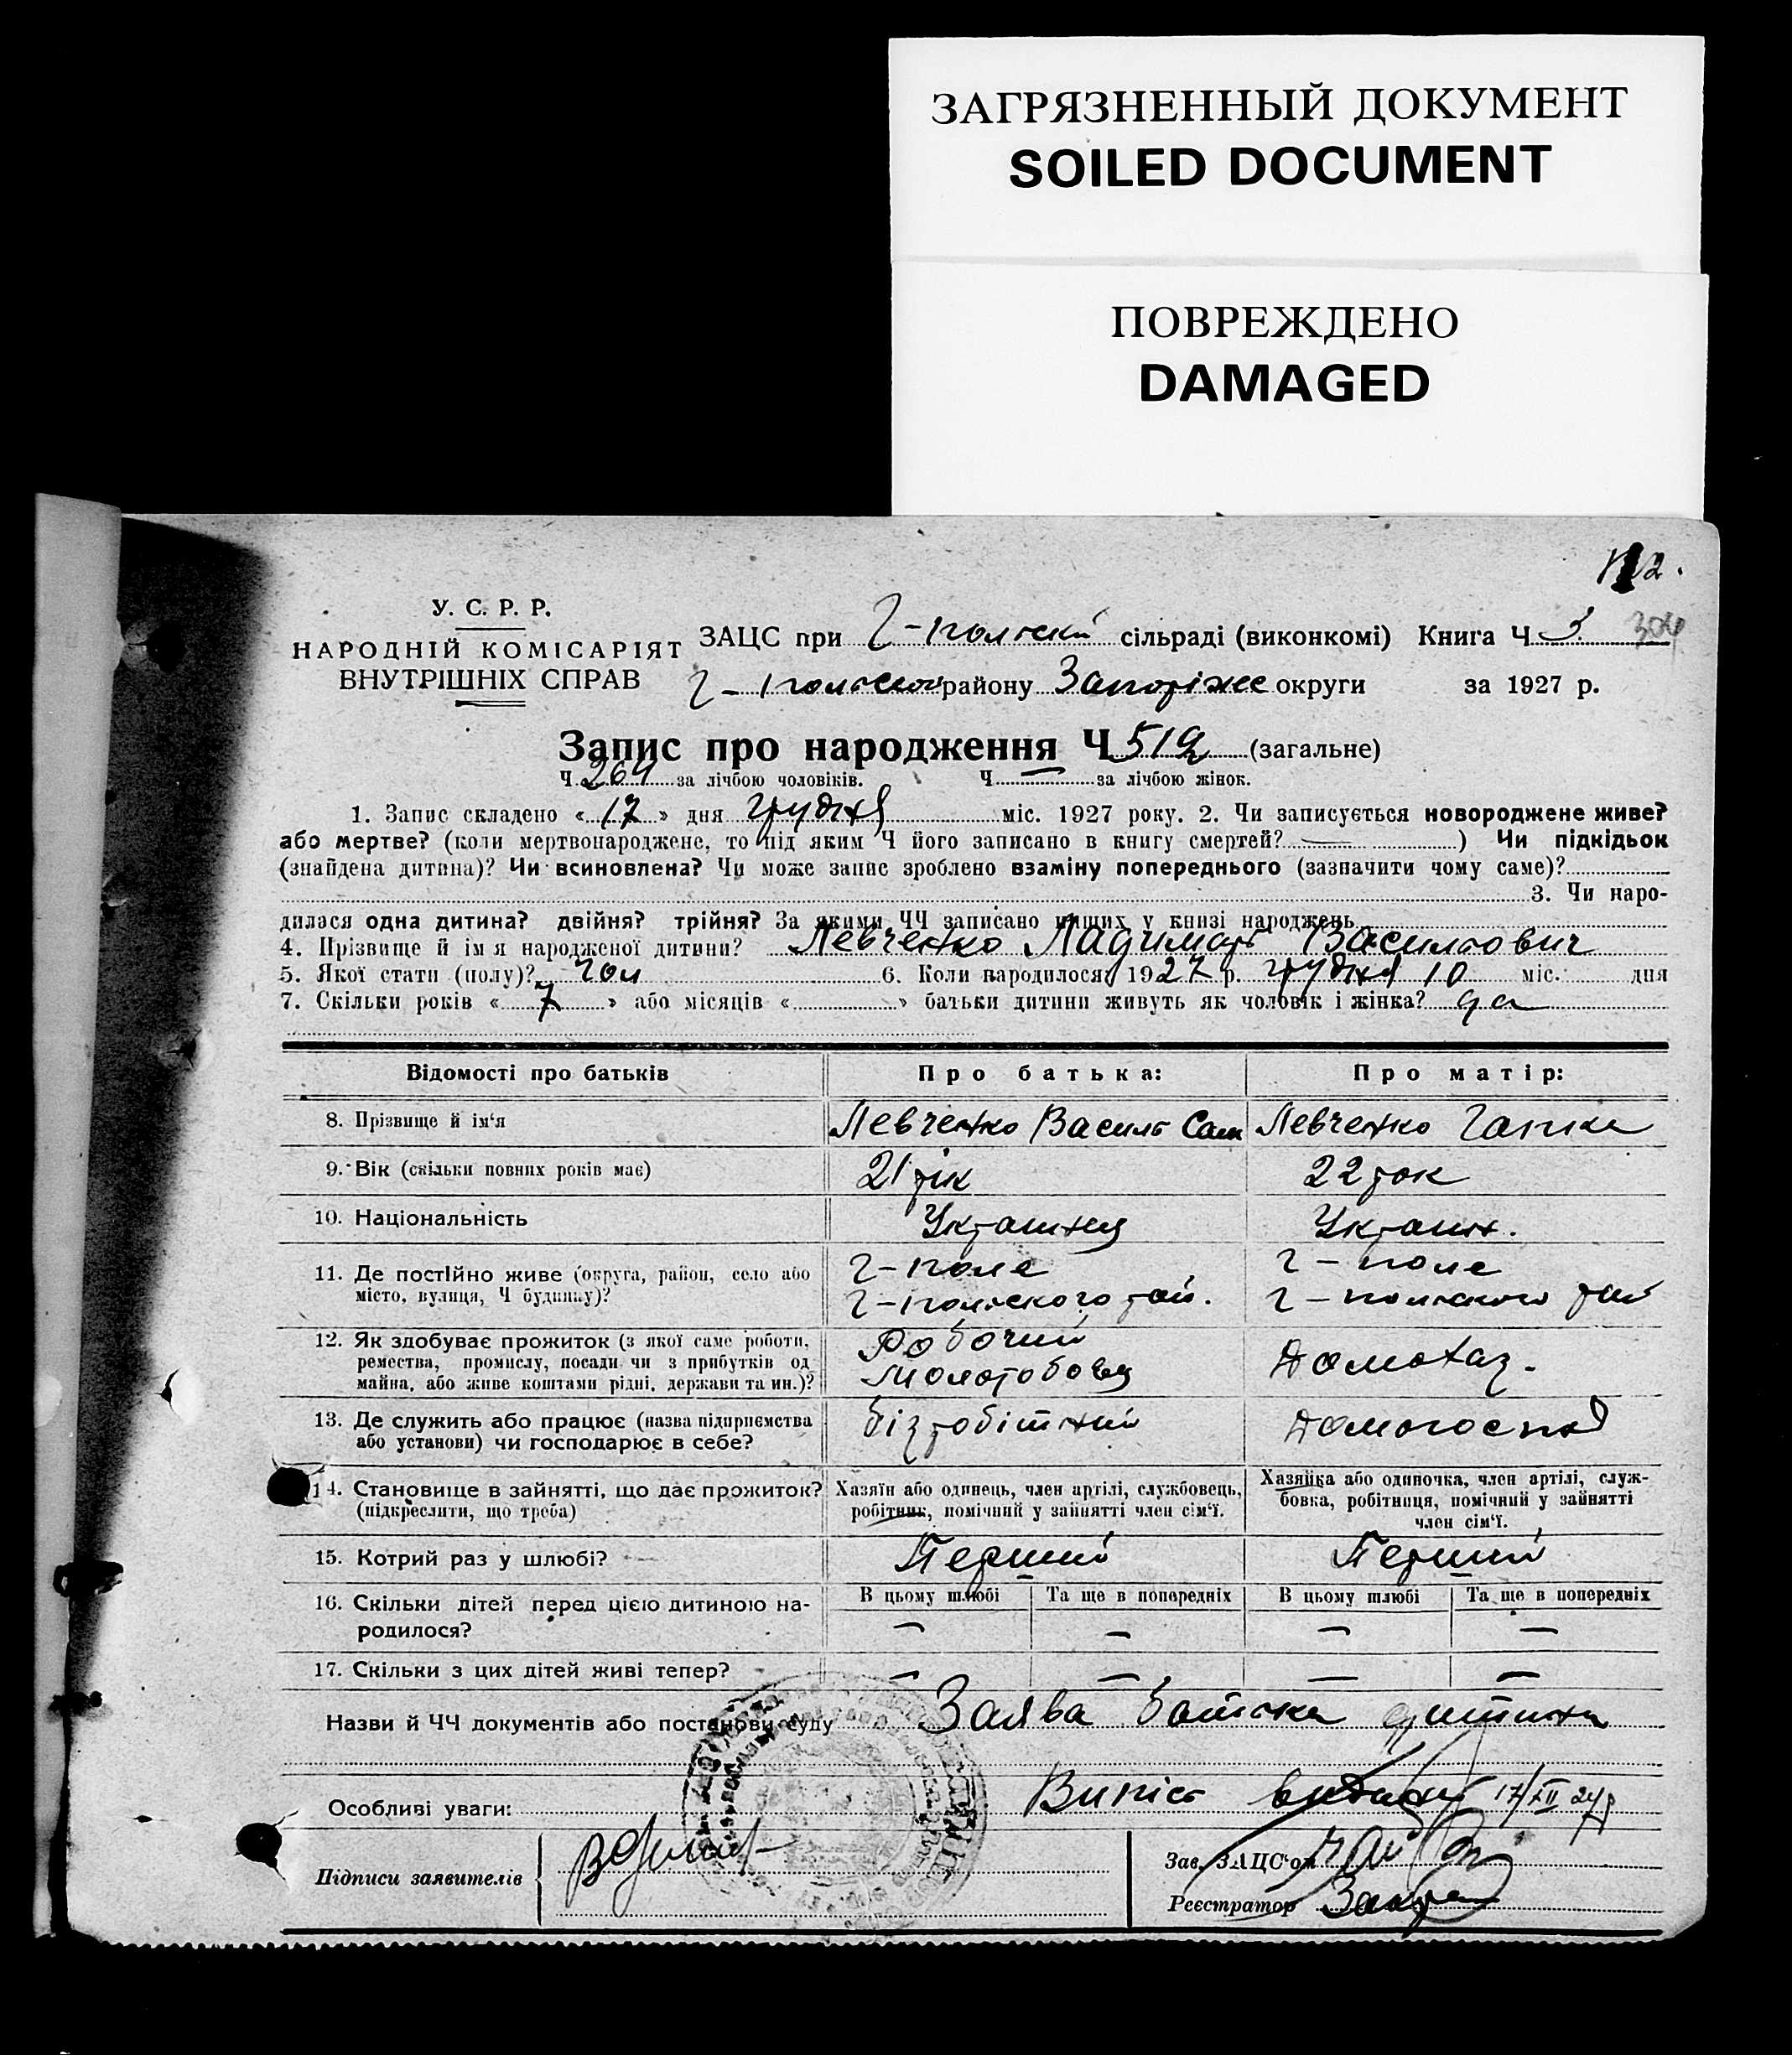 ЗАГРЯЗНЕННЫЙ ДОКУМЕНТ
SOILED DOCUMENT
ПОВРЕЖДЕНО
DAMAGED
У. С. Р. Р.
НАРОДНІЙ КОМІСАРІЯТ
ВНУТРІШНІХ СПРАВ
ЗАЦС при Г-польскій сільраді (виконкомі) Книга Ч 3 304
Г-польского району Запоріже округи за 1927 р.
Запис про народження Ч 519 (загальне)
Ч 264 за лічбою чоловіків. Ч — за лічбою жінок.
1. Запис складено «17» дня грудня міс. 1927 року. 2. Чи записується новороджене живе?
або мертве? (коли мертвонароджене, то під яким Ч його записано в книгу смертей? — ) Чи підкідьок
(знайдена дитина)? Чи всиновлена? Чи може запис зроблено взаміну попереднього (зазначити чому саме)?
3. Чи наро-
дилася одна дитина? двійня? трійня? За якими ЧЧ записано инших у книзі народжень
4. Прізвище й ім я народженої дитини? Левченко Ладимарь Васильович
5. Якої стати (полу)? чол 6. Коли народилося 1927 р. грудня 10 міс. дня
7. Скільки років «7» або місяців « » батьки дитини живуть як чоловік і жінка? да
Відомості про батьків Про батька: Про матір:
8. Прізвище й ім'я Левченко Василь Сам Левченко Гапка
9. Вік (скільки повних років має) 21 рік 22 рок
10. Національність Українця Україн.
11. Де постійно живе (округа, район, село або Г-поле Г-поле
місто, вулиця, Ч будинку)? Г-польского рай. Г-польского рай
12. Як здобуває прожиток (з якої саме роботи, Робочий
ремества, промислу, посади чи з прибутків од Молотобоец Домохаз.
майна, або живе коштами рідні, держави та ин.)?
13. Де служить або працює (назва підприємства безробітний Домогоспод
або установи) чи господарює в себе?
14. Становище в зайнятті, що дає прожиток? Хазяїн або одинець, член артілі, службовець, Хазяйка або одиночка, член артілі, служ-
(підкреслити, що треба) робітник, помічний у зайнятті член сім'ї. бовка, робітниця, помічний у зайнятті
член сім'ї.
15. Котрий раз у шлюбі? Перший Перший
16. Скільки дітей перед цією дитиною на- В цьому шлюбі Та ще в попередніх В цьому шлюбі Та ще в попередніх
родилося? — — — —
17. Скільки з цих дітей живі тепер? — — — —
Назви й ЧЧ документів або постанови суду Заява батька дитини
Особливі уваги: Випіс видано 17/XII 27р
Підписи заявителів
Зав. ЗАЦС'ом
Реєстратор